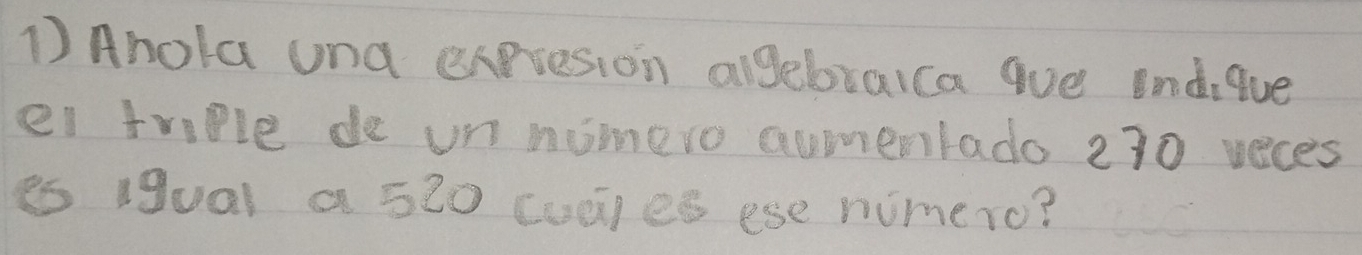 1) Anota una expresión algebraica que indique
el triple de un número aumentado 270 veces
es igual a 520 cuál es ese número?